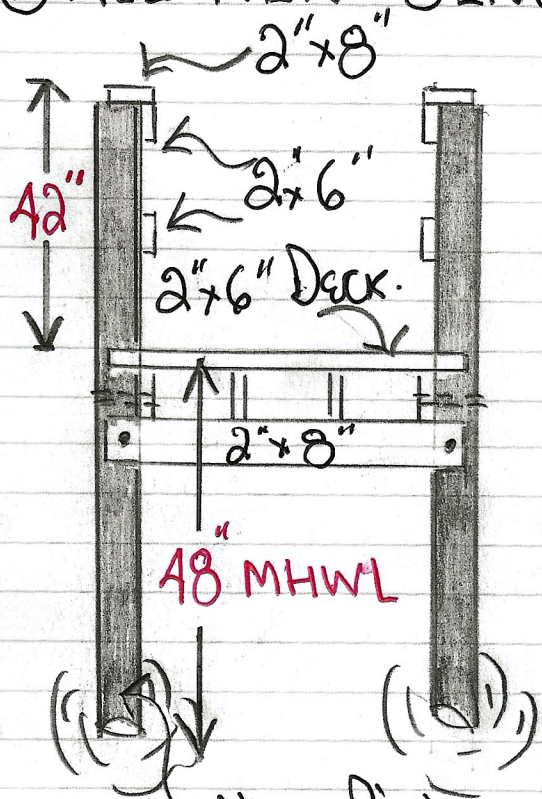 2"x8"
42"
2"x6"
2"x6" Deck.
2"x8"
48" MHWL